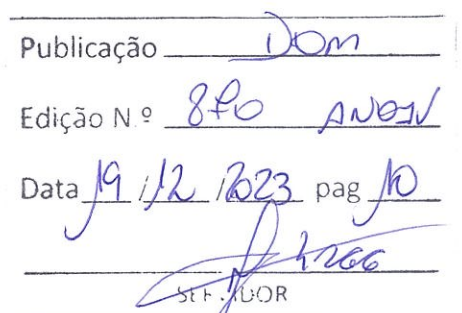 Publicação DOM
Edição N.º 870 ANO IV
Data 19 / 12 / 2023 pag 10
SERVIDOR